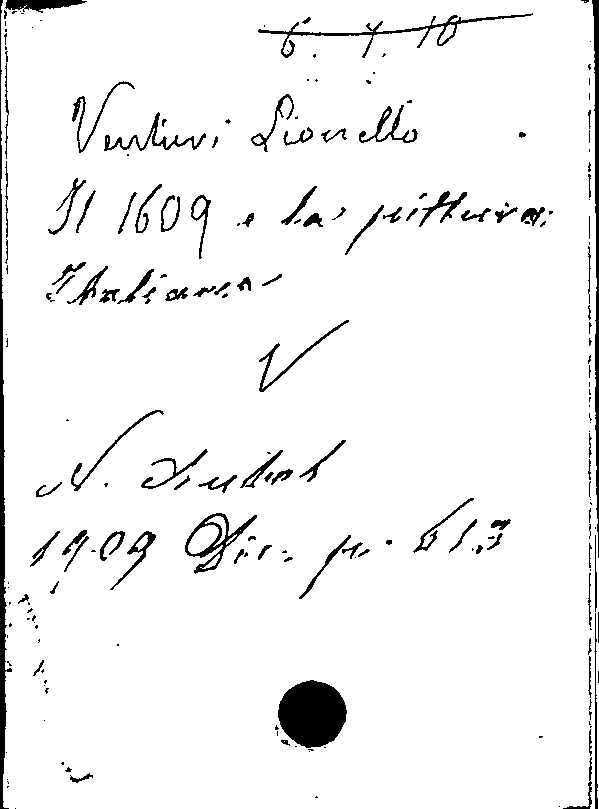 6. 4. 10
Venturi Lionello
Il 1609 e la pittura
Italiana
V
N. Antol
1909 Dic. p. 613